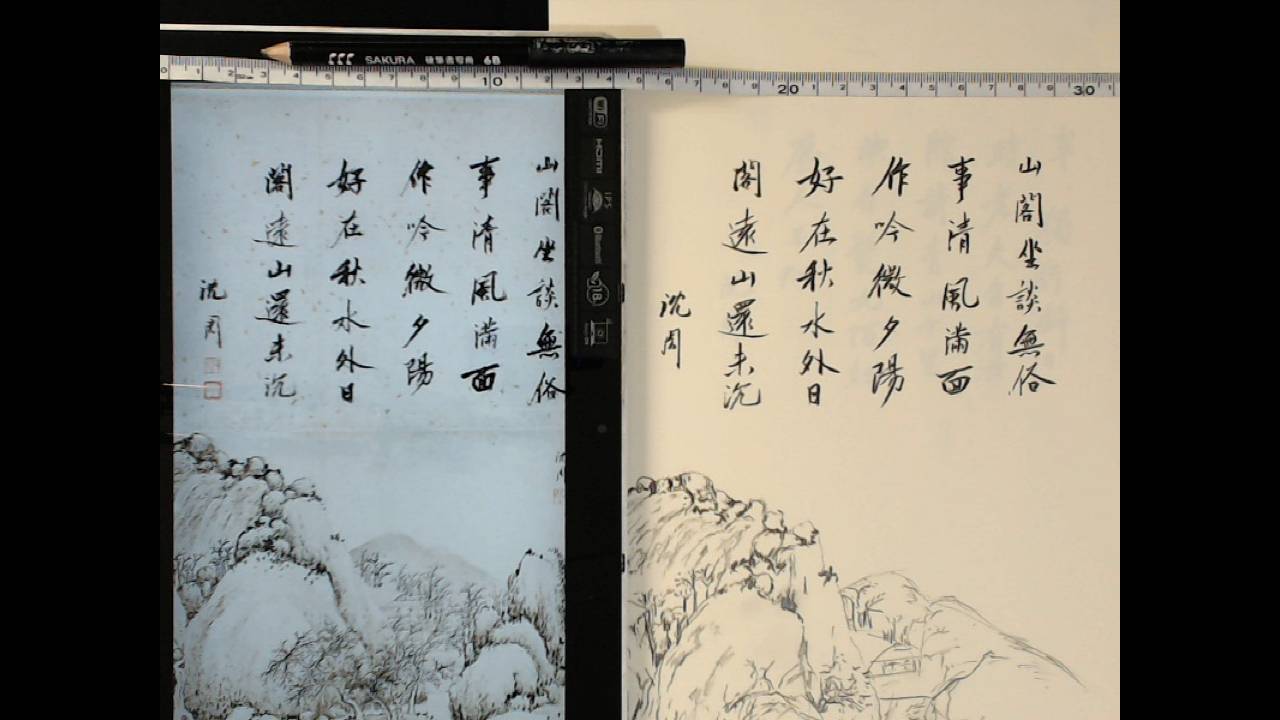 SAKURA 硬筆書写用 6B
10
20
30
山閣坐談無俗
事清風滿面
作吟微夕陽
好在秋水外日
閣遠山還未沉
沈周
WiFi
HDMI
IPS
Bluetooth
山閣坐談無俗
事清風滿面
作吟微夕陽
好在秋水外日
閣遠山還未沉
沈周